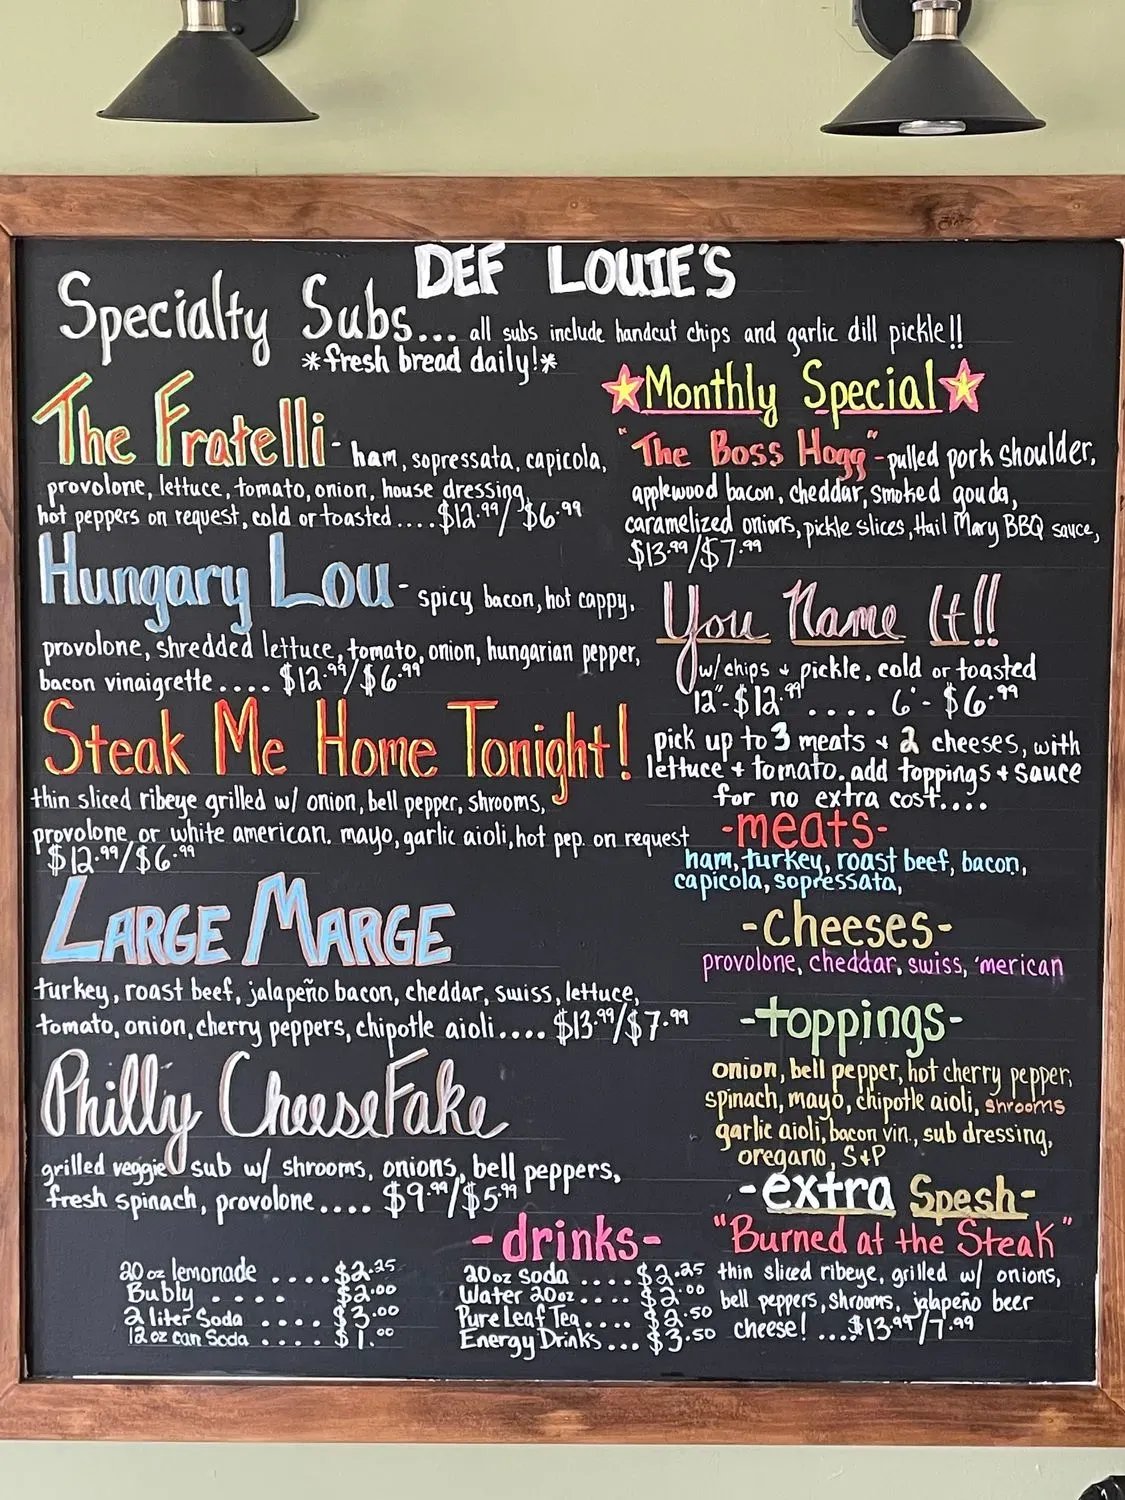 DEF LOUIE'S
Specialty Subs... all subs include handcut chips and garlic dill pickle!!
*fresh bread daily!*
The Fratelli - ham, sopressata, capicola,
provolone, lettuce, tomato, onion, house dressing,
hot peppers on request, cold or toasted ....$12.99/$6.99
Hungary Lou - spicy bacon, hot cappy,
provolone, shredded lettuce, tomato, onion, hungarian pepper,
bacon vinaigrette .... $12.99/$6.99
Steak Me Home Tonight!
thin sliced ribeye grilled w/ onion, bell pepper, shrooms,
provolone or white american. mayo, garlic aioli, hot pep. on request
$12.99/$6.99
LARGE MARGE
turkey, roast beef, jalapeño bacon, cheddar, swiss, lettuce,
tomato, onion, cherry peppers, chipotle aioli.... $13.99/$7.99
Philly CheeseFake
grilled veggie sub w/ shrooms, onions, bell peppers,
fresh spinach, provolone.... $9.99/$5.99
Monthly Special
"The Boss Hogg" - pulled pork shoulder,
applewood bacon, cheddar, smoked gouda,
caramelized onions, pickle slices, Hail Mary BBQ sauce,
$13.99/$7.99
You Name It!!
w/chips + pickle, cold or toasted
12"-$12.99 .... 6" - $6.99
pick up to 3 meats + 2 cheeses, with
lettuce + tomato. add toppings + sauce
for no extra cost....
-meats-
ham, turkey, roast beef, bacon,
capicola, sopressata,
-cheeses-
provolone, cheddar, swiss, 'merican
-toppings-
onion, bell pepper, hot cherry pepper,
spinach, mayo, chipotle aioli, shrooms
garlic aioli, bacon vin., sub dressing,
oregano, S+P
-extra Spesh-
"Burned at the Steak"
thin sliced ribeye, grilled w/ onions,
bell peppers, shrooms, jalapeño beer
cheese! ...$13.99/7.99
-drinks-
20 oz lemonade ....$2.25
Bubly .... $2.00
2 liter Soda .... $3.00
12 oz can Soda .... $1.00
20oz soda ....$2.25
Water 20oz .... $2.00
Pure Leaf Tea .... $2.50
Energy Drinks... $3.50